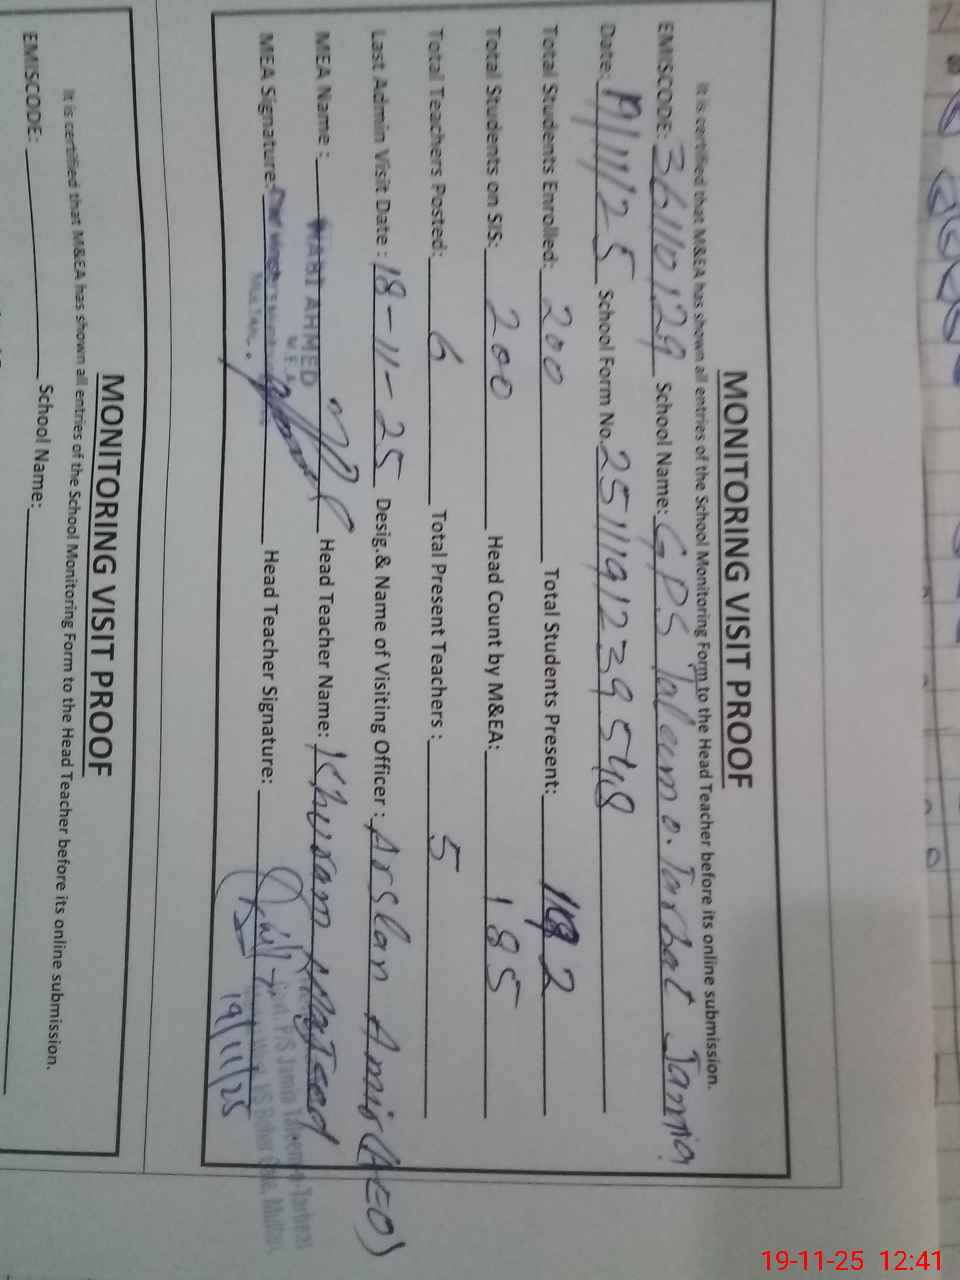 MONITORING VISIT PROOF
It is certified that M&EA has shown all entries of the School Monitoring Form to the Head Teacher before its online submission.
EMISCODE: 36110129 School Name: GPS Taleem o. Tarbat Jamia
Date: 19/11/25 School Form No. 2511191239548
Total Students Enrolled: 200 Total Students Present: 182
Total Students on SIS: 200 Head Count by M&EA: 185
Total Teachers Posted: 6 Total Present Teachers : 5
Last Admin Visit Date : 18-11-25 Desig.& Name of Visiting Officer : Arslan Amir (AEO)
MEA Name : AHMED Head Teacher Name: Khuram
M.E.A
MEA Signature: Head Teacher Signature:
MULTAN.
19/11/25
MONITORING VISIT PROOF
It is certified that M&EA has shown all entries of the School Monitoring Form to the Head Teacher before its online submission.
EMISCODE: School Name:
19-11-25 12:41